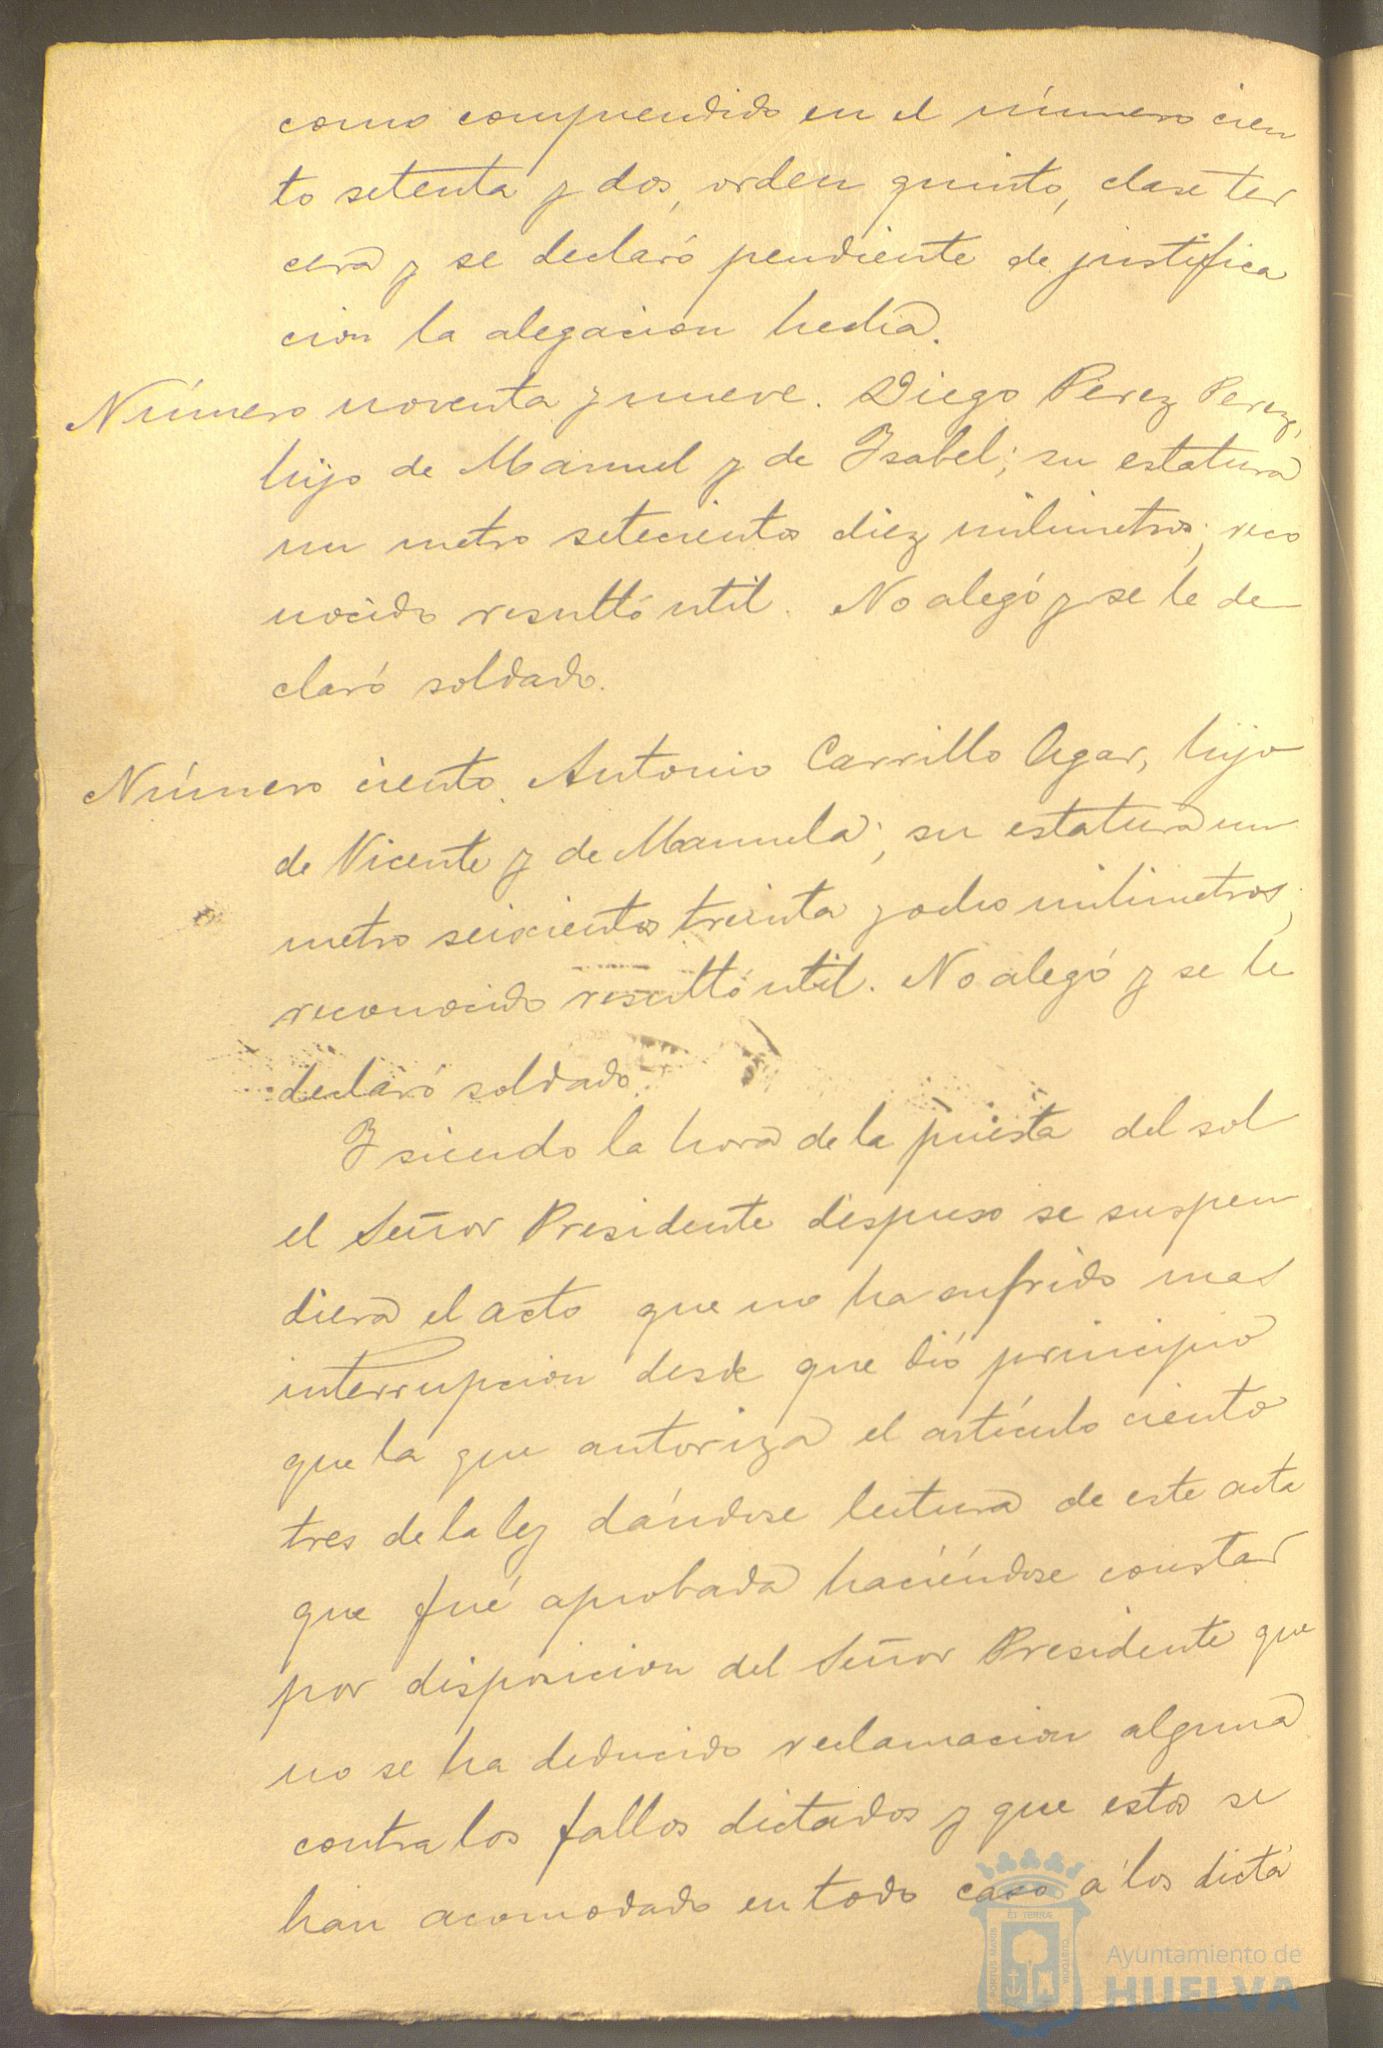 como comprendido en el número cien
to setenta y dos, orden quinto, clase ter
cera y se declaró pendiente de justifica
cion la alegacion hecha.
Número noventa y nueve. Diego Perez Perez,
hijo de Manuel y de Isabel; su estatura
un metro setecientos diez milimetros; reco
nocido resultó util. No alegó y se le de
claró soldado.
Número ciento. Antonio Carrillo Agar, hijo
de Vicente y de Manuela; su estatura un
metro seiscientos treinta y ocho milimetros,
reconocido resultó util. No alegó y se le
declaró soldado.
Y siendo la hora de la puesta del sol
el Señor Presidente dispuso se suspen
diera el acto que no ha sufrido mas
interrupcion desde que dió principio
que la que autoriza el artículo ciento
tres de la ley dándose lectura de este acta
que fué aprobada haciéndose constar
por disposicion del Señor Presidente que
no se ha deducido reclamacion alguna
contra los fallos dictados y que estos se
han acomodado en todo caso á los dictá
Ayuntamiento de
HUELVA